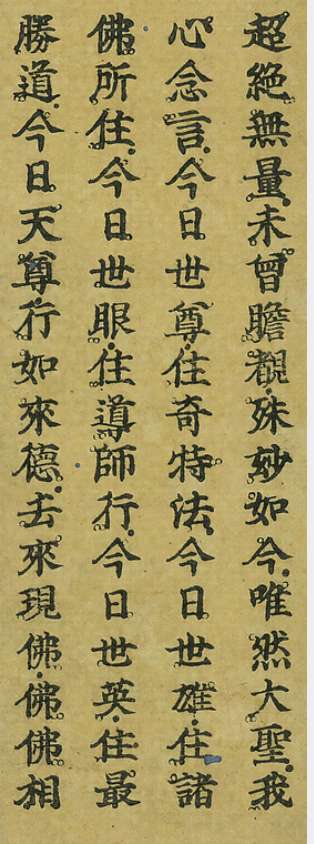 超絶無量未曾瞻覩殊妙如今唯然大聖我
心念言今日世尊住奇特法今日世雄住諸
佛所住今日世眼住導師行今日世英住最
勝道今日天尊行如來德去來現佛佛佛相